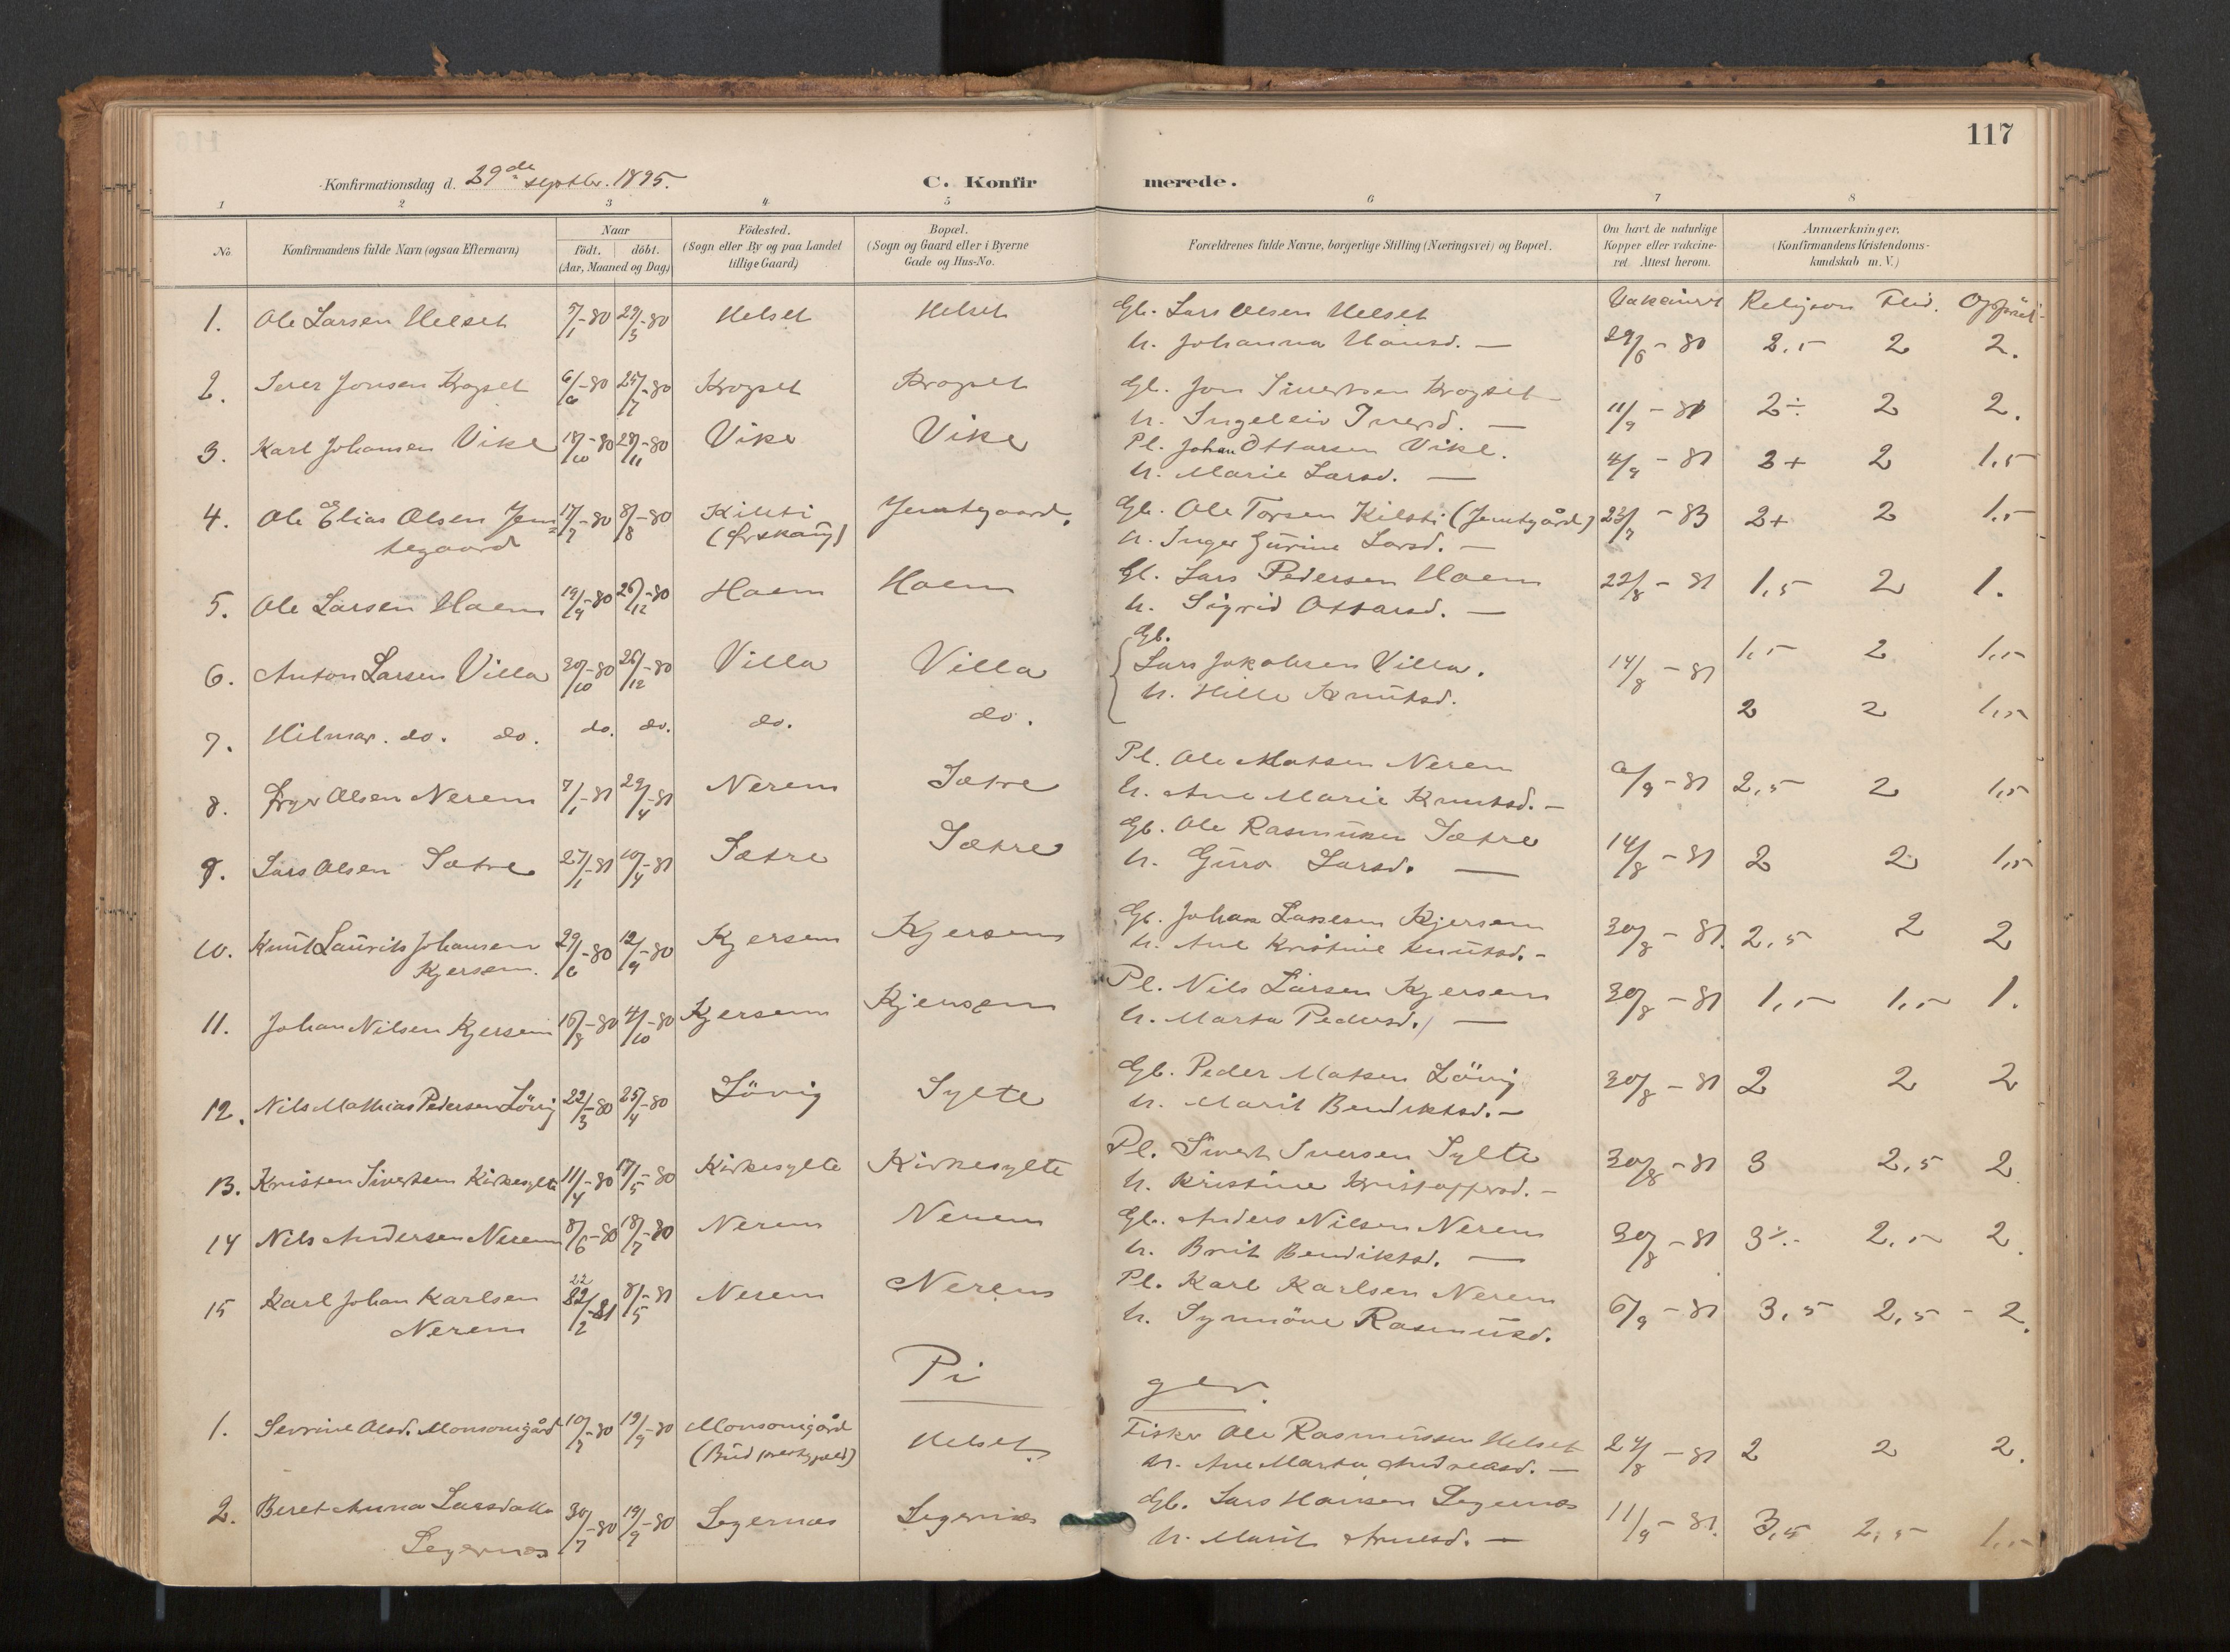 117
Konfirmationsdag d. 29de septbr. 1895.
C. Konfirmerede.
1 2 3 4 5 6 7 8
No.
Konfirmandens fulde Navn (ogsaa Efternavn)
Naar
födt. döbt.
(Aar, Maaned og Dag)
Födested.
(Sogn eller By og paa Landet
tillige Gaard)
Bopæl.
(Sogn og Gaard eller i Byerne
Gade og Hus-No.
Forældrenes fulde Navne, borgerlige Stilling (Næringsvei) og Bopæl.
Om havt de naturlige
Kopper eller vakcine-
ret. Attest herom.
Anmærkninger.
(Konfirmandens Kristendoms-
kundskab m. V.)
Religion Flid.
1. Ole Larsen Helset 29/3-80 Helset Helset Gb. Lars Olsen Helset
h. Johanna Hansd. — 29/6-80 2.5 2 2.
2. Iver Jonsen Krogset 6/6-80 25/7-80 Krogset Krogset Gb. Jon Sivertsen Krogset
h. Ingeleiv Iversd. — 11/9-81 2÷ 2 2.
3. Karl Johansen Vike 18/10-80 28/11-80 Vike Vike Pl. Johan Ottarsen Vike.
h. Marie Larsd. — 4/9-81 2+ 2 1,5
4. Ole Elias Olsen Jem= 17/7-80 8/8-80 Kilsti Jemtgaard. Gb. Ole Torsen Kilsti (Jemtgård) 23/7-83 2+ 2 1.5
tegaard (Ørskaug) h. Inger Gurine Larsd. —
5. Ole Larsen Haem 19/9-80 26/12-80 Haem Haem Gb. Lars Pedersen Haem 22/8-81 1,5 2 1.
h. Sigrid Ottarsd. —
Gb.
6. Anton Larsen Villa 30/10-80 26/12-80 Villa Villa Lars Jakobsen Villa. 14/8-81 1.5 2 1.5
h. Hille Knutsd.
7. Hilmar. do. do. do. do. do. do. 2 2 1.5
8. Olsen Nerem 7/1-81 29/4-81 Nerem Sætre Pl. Ole Matsen Nerem
h. Ane Marie Knutsd. — 2,5 2 1,5
9. Lars Olsen Sætre 27/1-81 10/4-81 Sætre Sætre Gb. Ole Rasmusen Sætre
h. Guro Larsd. — 14/8-81 2 2 1,5
10. Knut Laurits Johansen 29/6-80 12/9-80 Kjersem Kjersem Gb. Johan Kjersem
Kjersem. h. Ane Kristine Knutsd. - 30/8-81. 2,5 2 2
11. Johan Nilsen Kjersem 15/8-80 4/10-80 Kjersem Kjersem Pl. Nils Larsen Kjersem
h. Marta Pedersd. — 30/8-81 1,5 1,5 1.
12. Nils Mathias Pedersen Lövig 22/3-80 25/4-80 Lövig Sylte Gb. Peder Matsen Lövig
h. Marit Bendiktsd. — 30/8-81 2 2 2
13. Kristen Sivertsen Kirkesylte 11/4-80 17/5-80 Kirkesylte Kirkesylte Pl. Sivert Iversen Sylte
h. Kristine Kristoffersd. - 30/8-81 3 2,5 2
14 Nils Andersen Nerem 8/6-80 18/7-80 Nerem Nerem Gb. Anders Nilsen Nerem
h. Brit Bendiktsd. — 30/8-81 3÷ 2.5 2.
22
15 Karl Johan Karlsen 22/2-81 8/5-81 Nerem Nerem Pl. Karl Karlsen Nerem
Nerem h. Synnöve Rasmusd. 6/9-81 3,5 2,5 - 2.
Piger.
1. Sevrine Olsd. Monsomgård 10/7-80 19/9-80 Monsomgård Helset Fisker Ole Rasmussen Helset
h. Ane Marta Andreasd. — 24/8-81 2 2 2.
2. Beret Anna Larsdatter 30/7-80 19/9-80 Legernæs Legernæs Gb. Lars Hansen Legernæs
Legernæs h. Marit Arnesd. — 11/9-81. 3,5 2,5 1,5